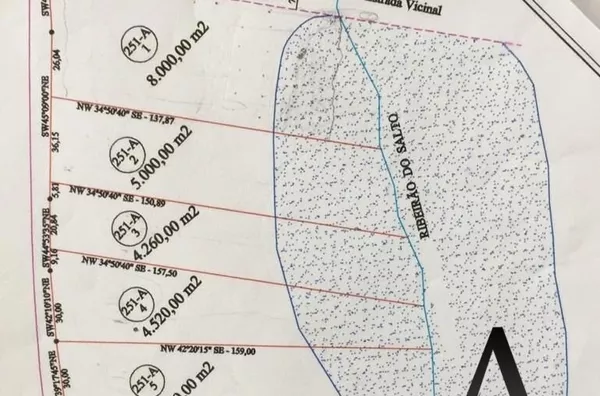 Vicinal
251-A
1
8.000,00 m2
26,04
SW45°09'00"NE
NW 34°50'40" SE - 137,87
36,15
251-A
2
5.000,00 m2
RIBEIRÃO DO SALTO
5,83
NW 34°50'40" SE - 150,89
20,84
251-A
3
4.260,00 m2
9,16
NW 34°50'40" SE - 157,50
SW42°10'10"NE
30,00
251-A
4
4.520,00 m2
NW 42°20'15" SE - 159,00
30,00
251-A
5
0,00 m2